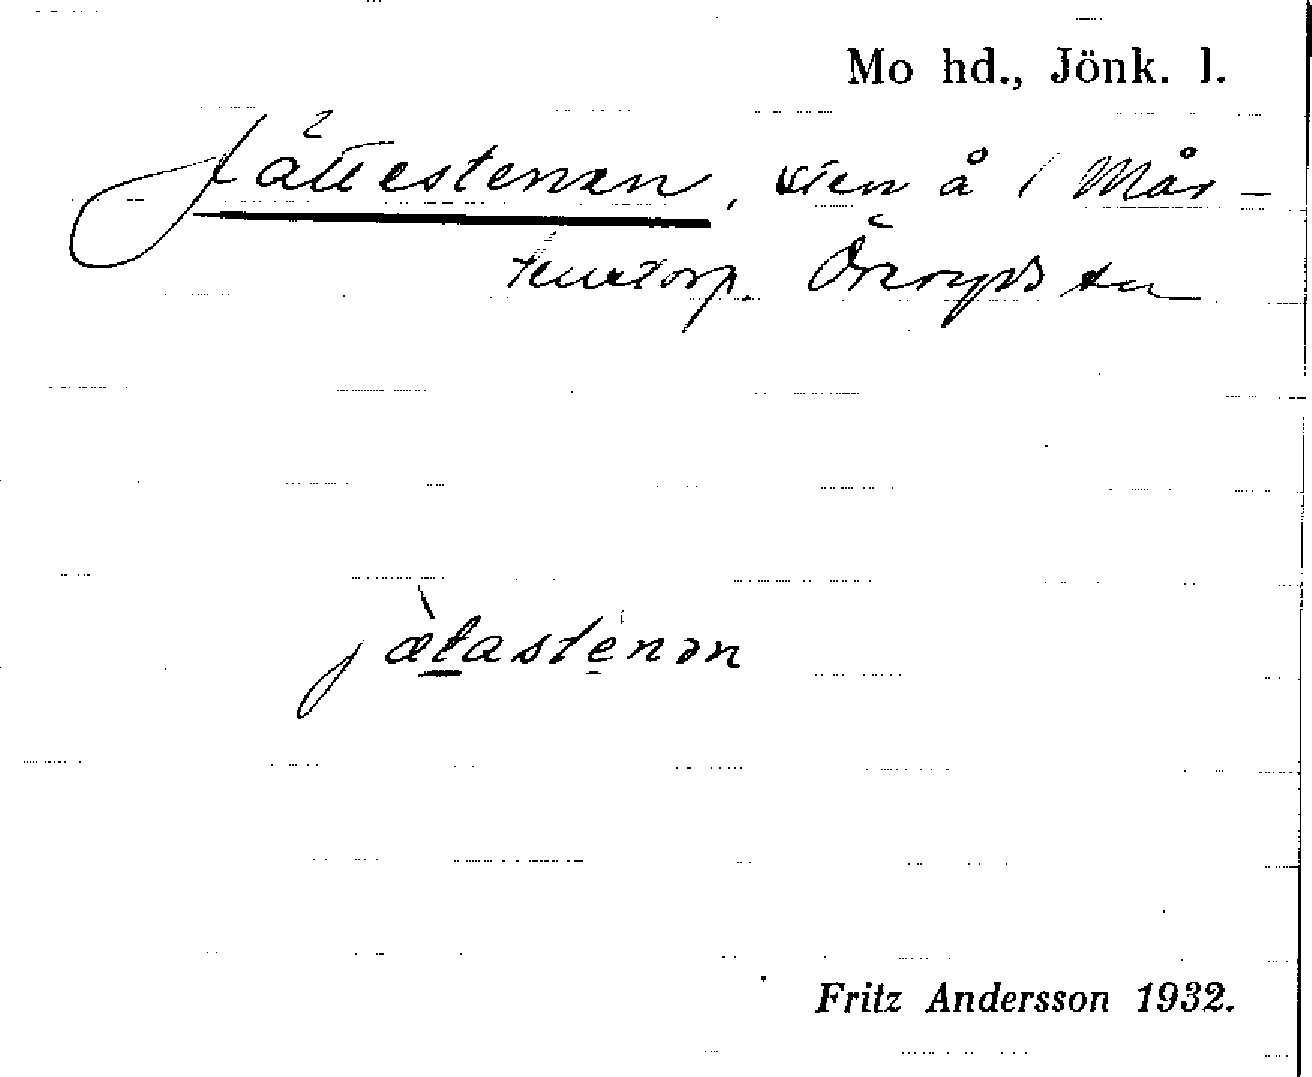 Mo hd., Jönk. l.
Jättestenen, sten å / Mår-
tenstorp. Öreryds sn
jætastenən
Fritz Andersson 1932.